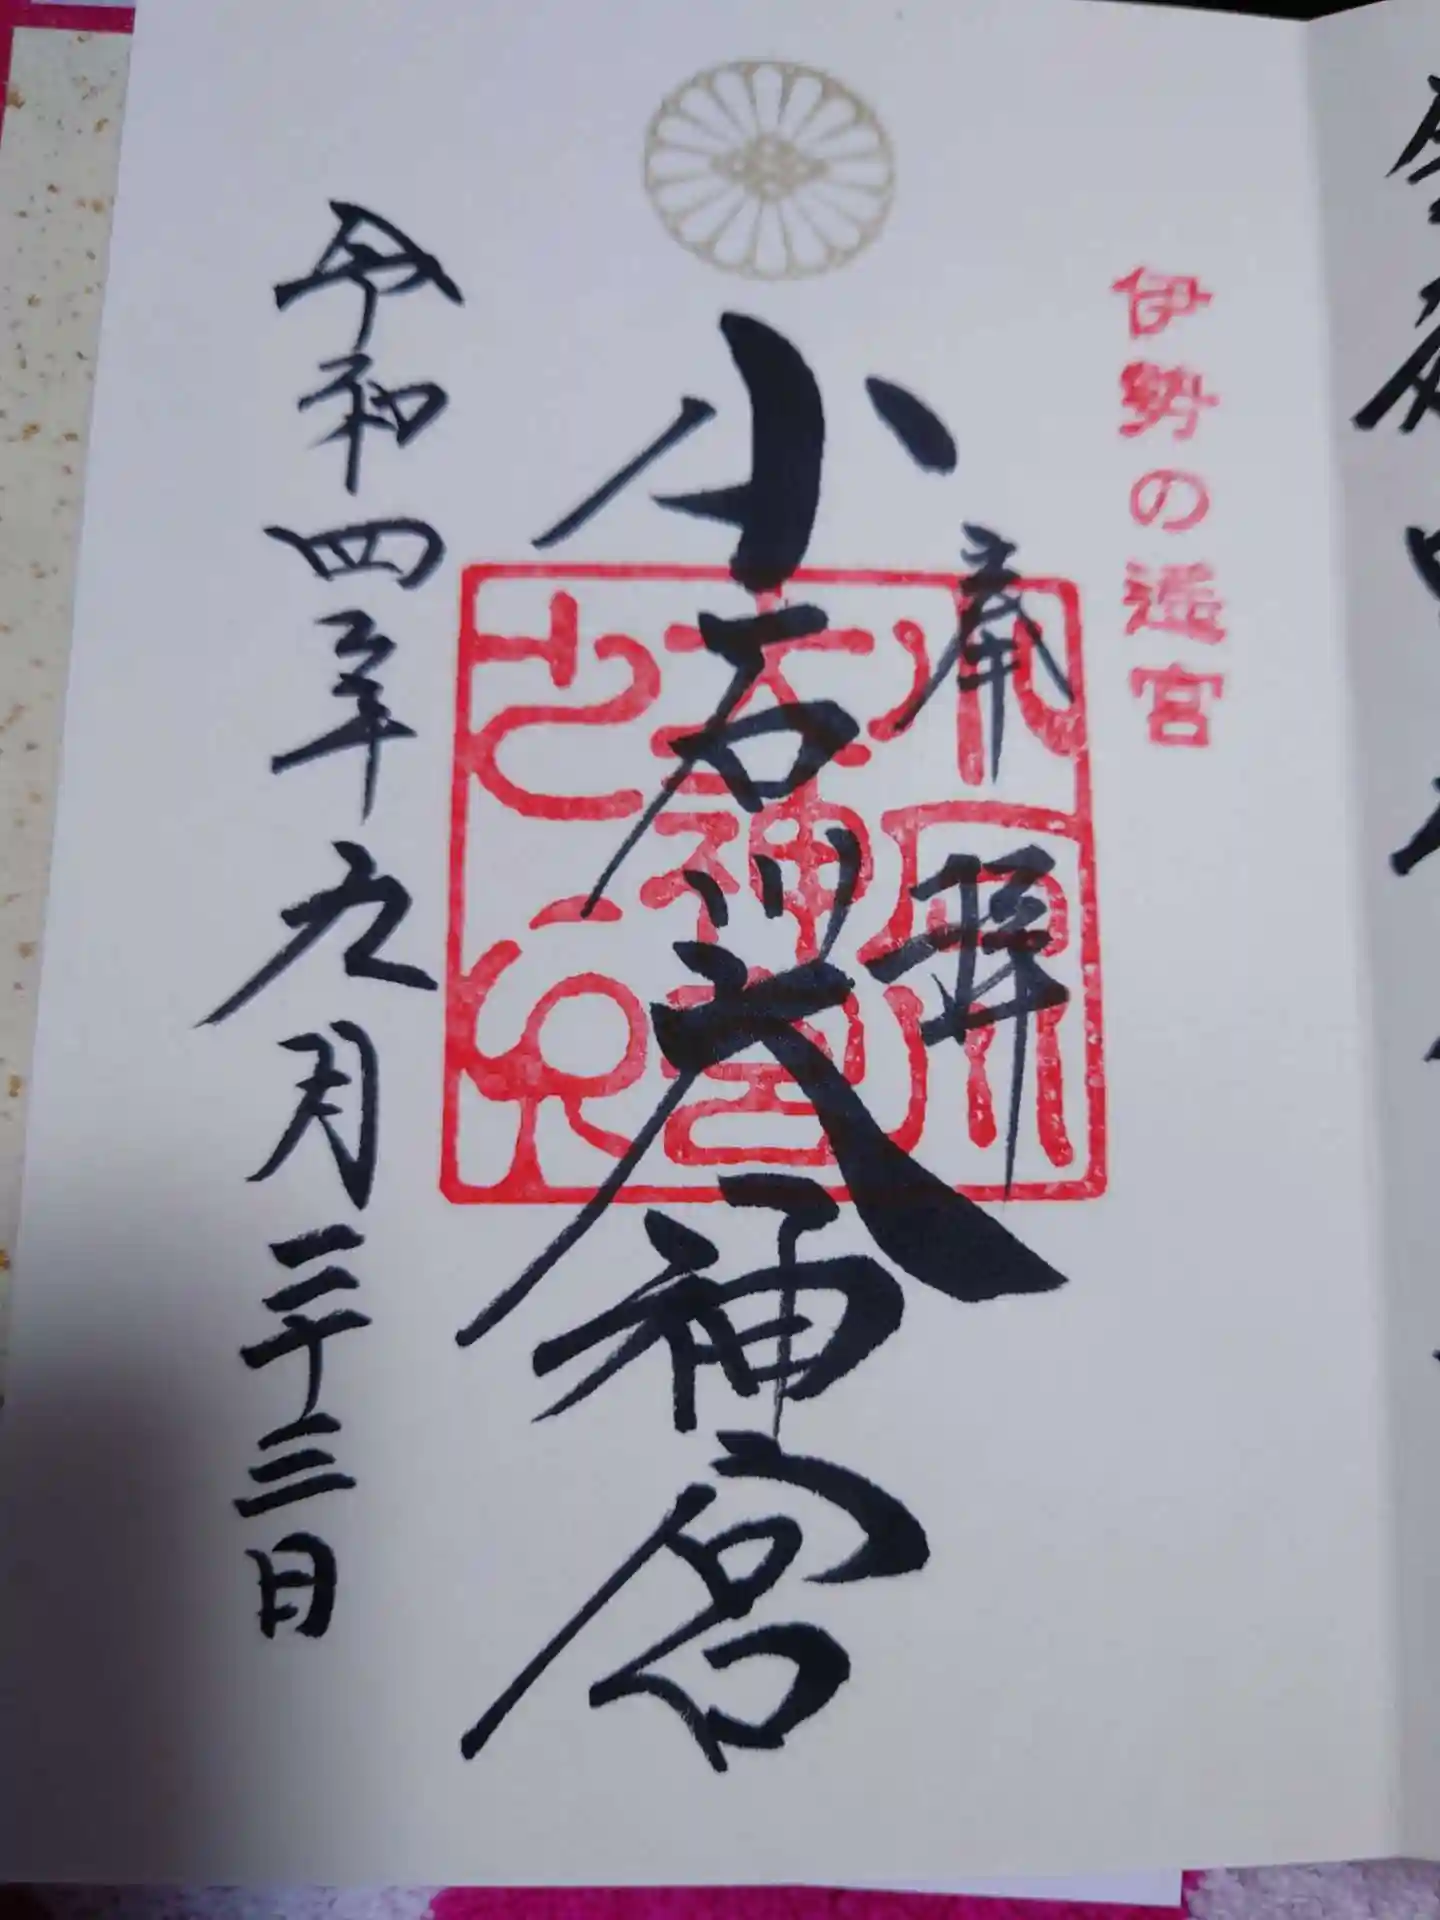 伊勢の遥宮
奉拝
小石川大神宮
小石川
大神宮
之印
令和四年九月二十三日